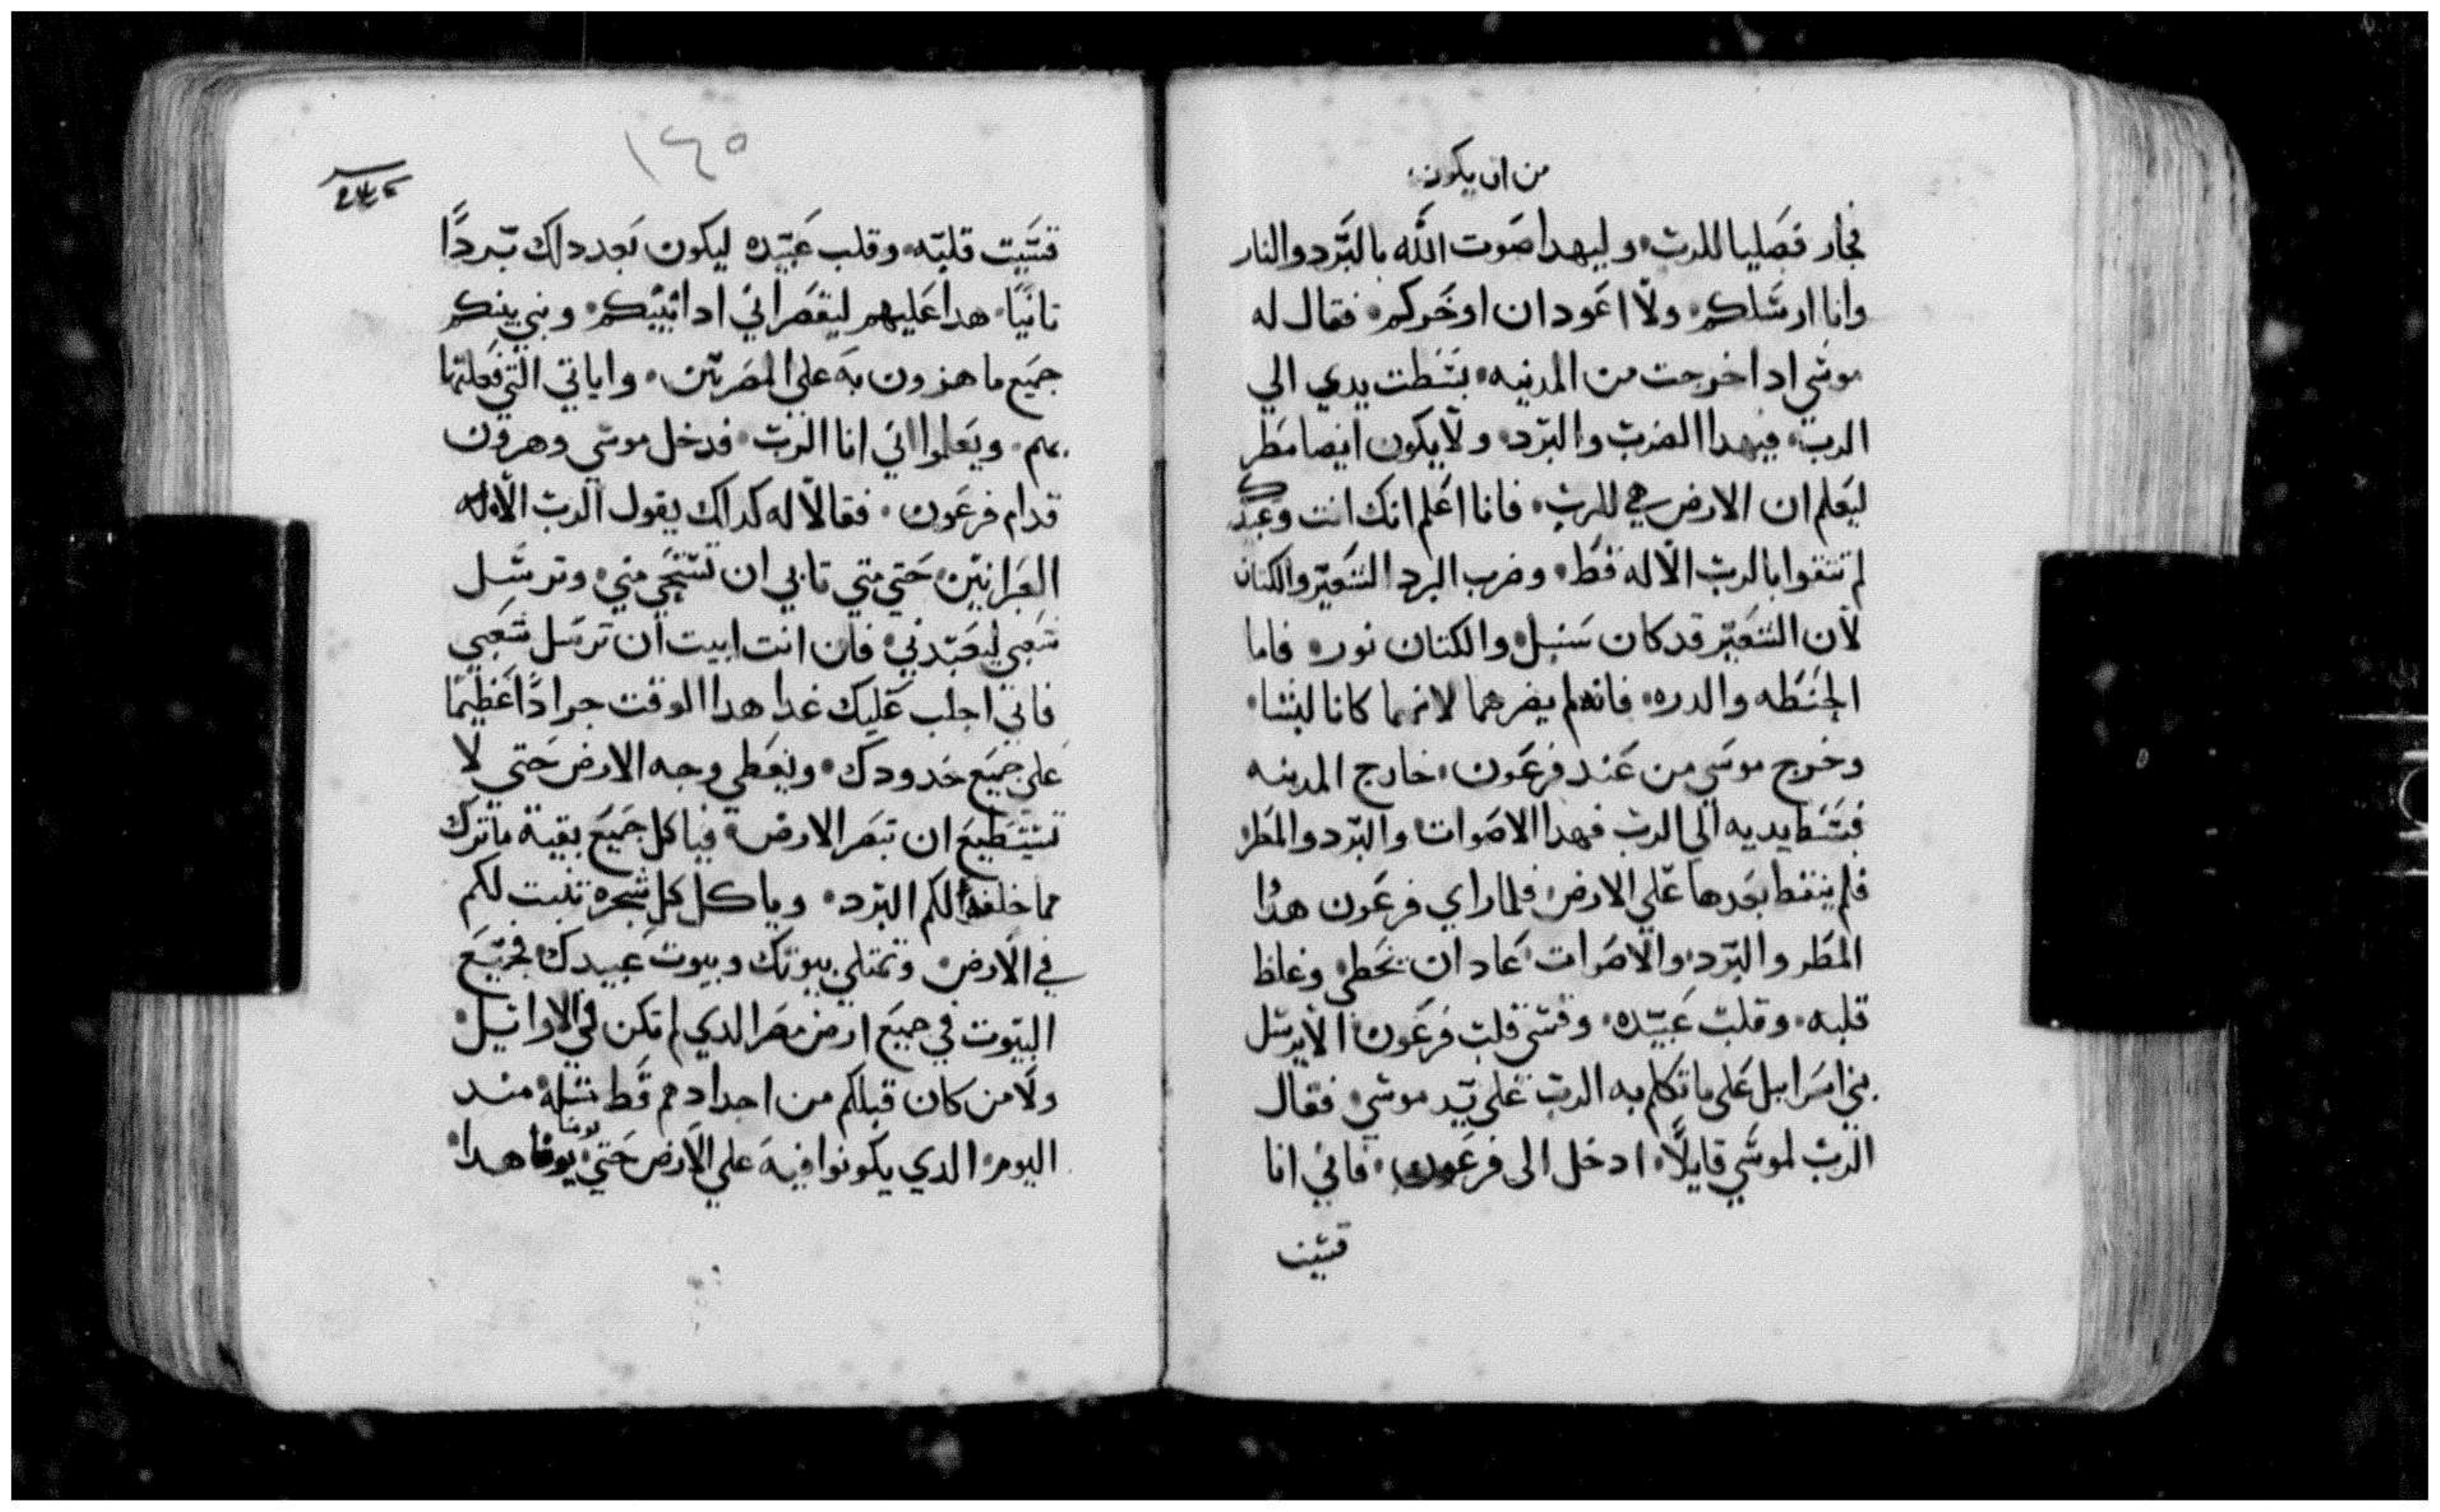 من ان يكون
فجار فصليا للرب وليهدا صوت الله بالبرد والنار
وانا ارسلكم ولا اعود ان اوخركم فقال له
موسي ادا خرجت من المدينه بسطت يدي الي
الرب فيهدا الضرب والبرد ولا يكون ايضا مطر
ليعلم ان الارض هي للرب فانا اعلم انك انت وعبيدك
لم تتقوا بالرب الاله قط وضرب البرد الشعير والكتان
لان الشعير قد كان سنبل والكتان نور فاما
الحنطه والدره فانه لم يضرهما لانهما كانا لبشا
وخرج موسي من عند فرعون خارج المدينه
فبسط يديه الى الرب فهدا الاصوات والبرد والمطر
فلم ينقط بعدها علي الارض فلما راي فرعون هدا
المطر والبرد والاصوات عاد ان يخطي وغلظ
قلبه وقلب عبيده وقسي قلب فرعون الا يرسل
بني اسراييل على ما تكلم به الرب على يد موسي فقال
الرب لموسي قايلا ادخل الى فرعون فاني انا
قسيت
١٤٥
قسيت قلبه وقلب عبيده ليكون بعد دلك بردا
تانيا هدا عليهم ليقصر اني ادا اتيتكم وبني بنيكم
جميع ما هزوت به على المصريين واياتي التي فعلتها
بهم ويعلموا اني انا الرب فدخل موسي وهرون
قدام فرعون فقالا له كداك يقول الرب الاله
العبرانيين حتي متي تابي ان تستحي مني وترسل
شعبي ليعبدني فان انت ابيت ان ترسل شعبي
فاني اجلب عليك غدا هدا الوقت جرادا عظيما
على جميع حدودك ويغطى وجه الارض حتي لا
تستطيع ان تبصر الارض فياكل جميع بقية ما ترك
مما خلفه لكم البرد وياكل كل شجره تنبت لكم
في الارض وتمتلي بيوتك وبيوت عبيدك فجميع
البيوت في جميع ارض مصر الدي لم تكن في الاوايل
ولا من كان قبلكم من اجدادهم قط مثله مند
اليوم الدي يكونوا فيه علي الارض حتي يومنا هدا